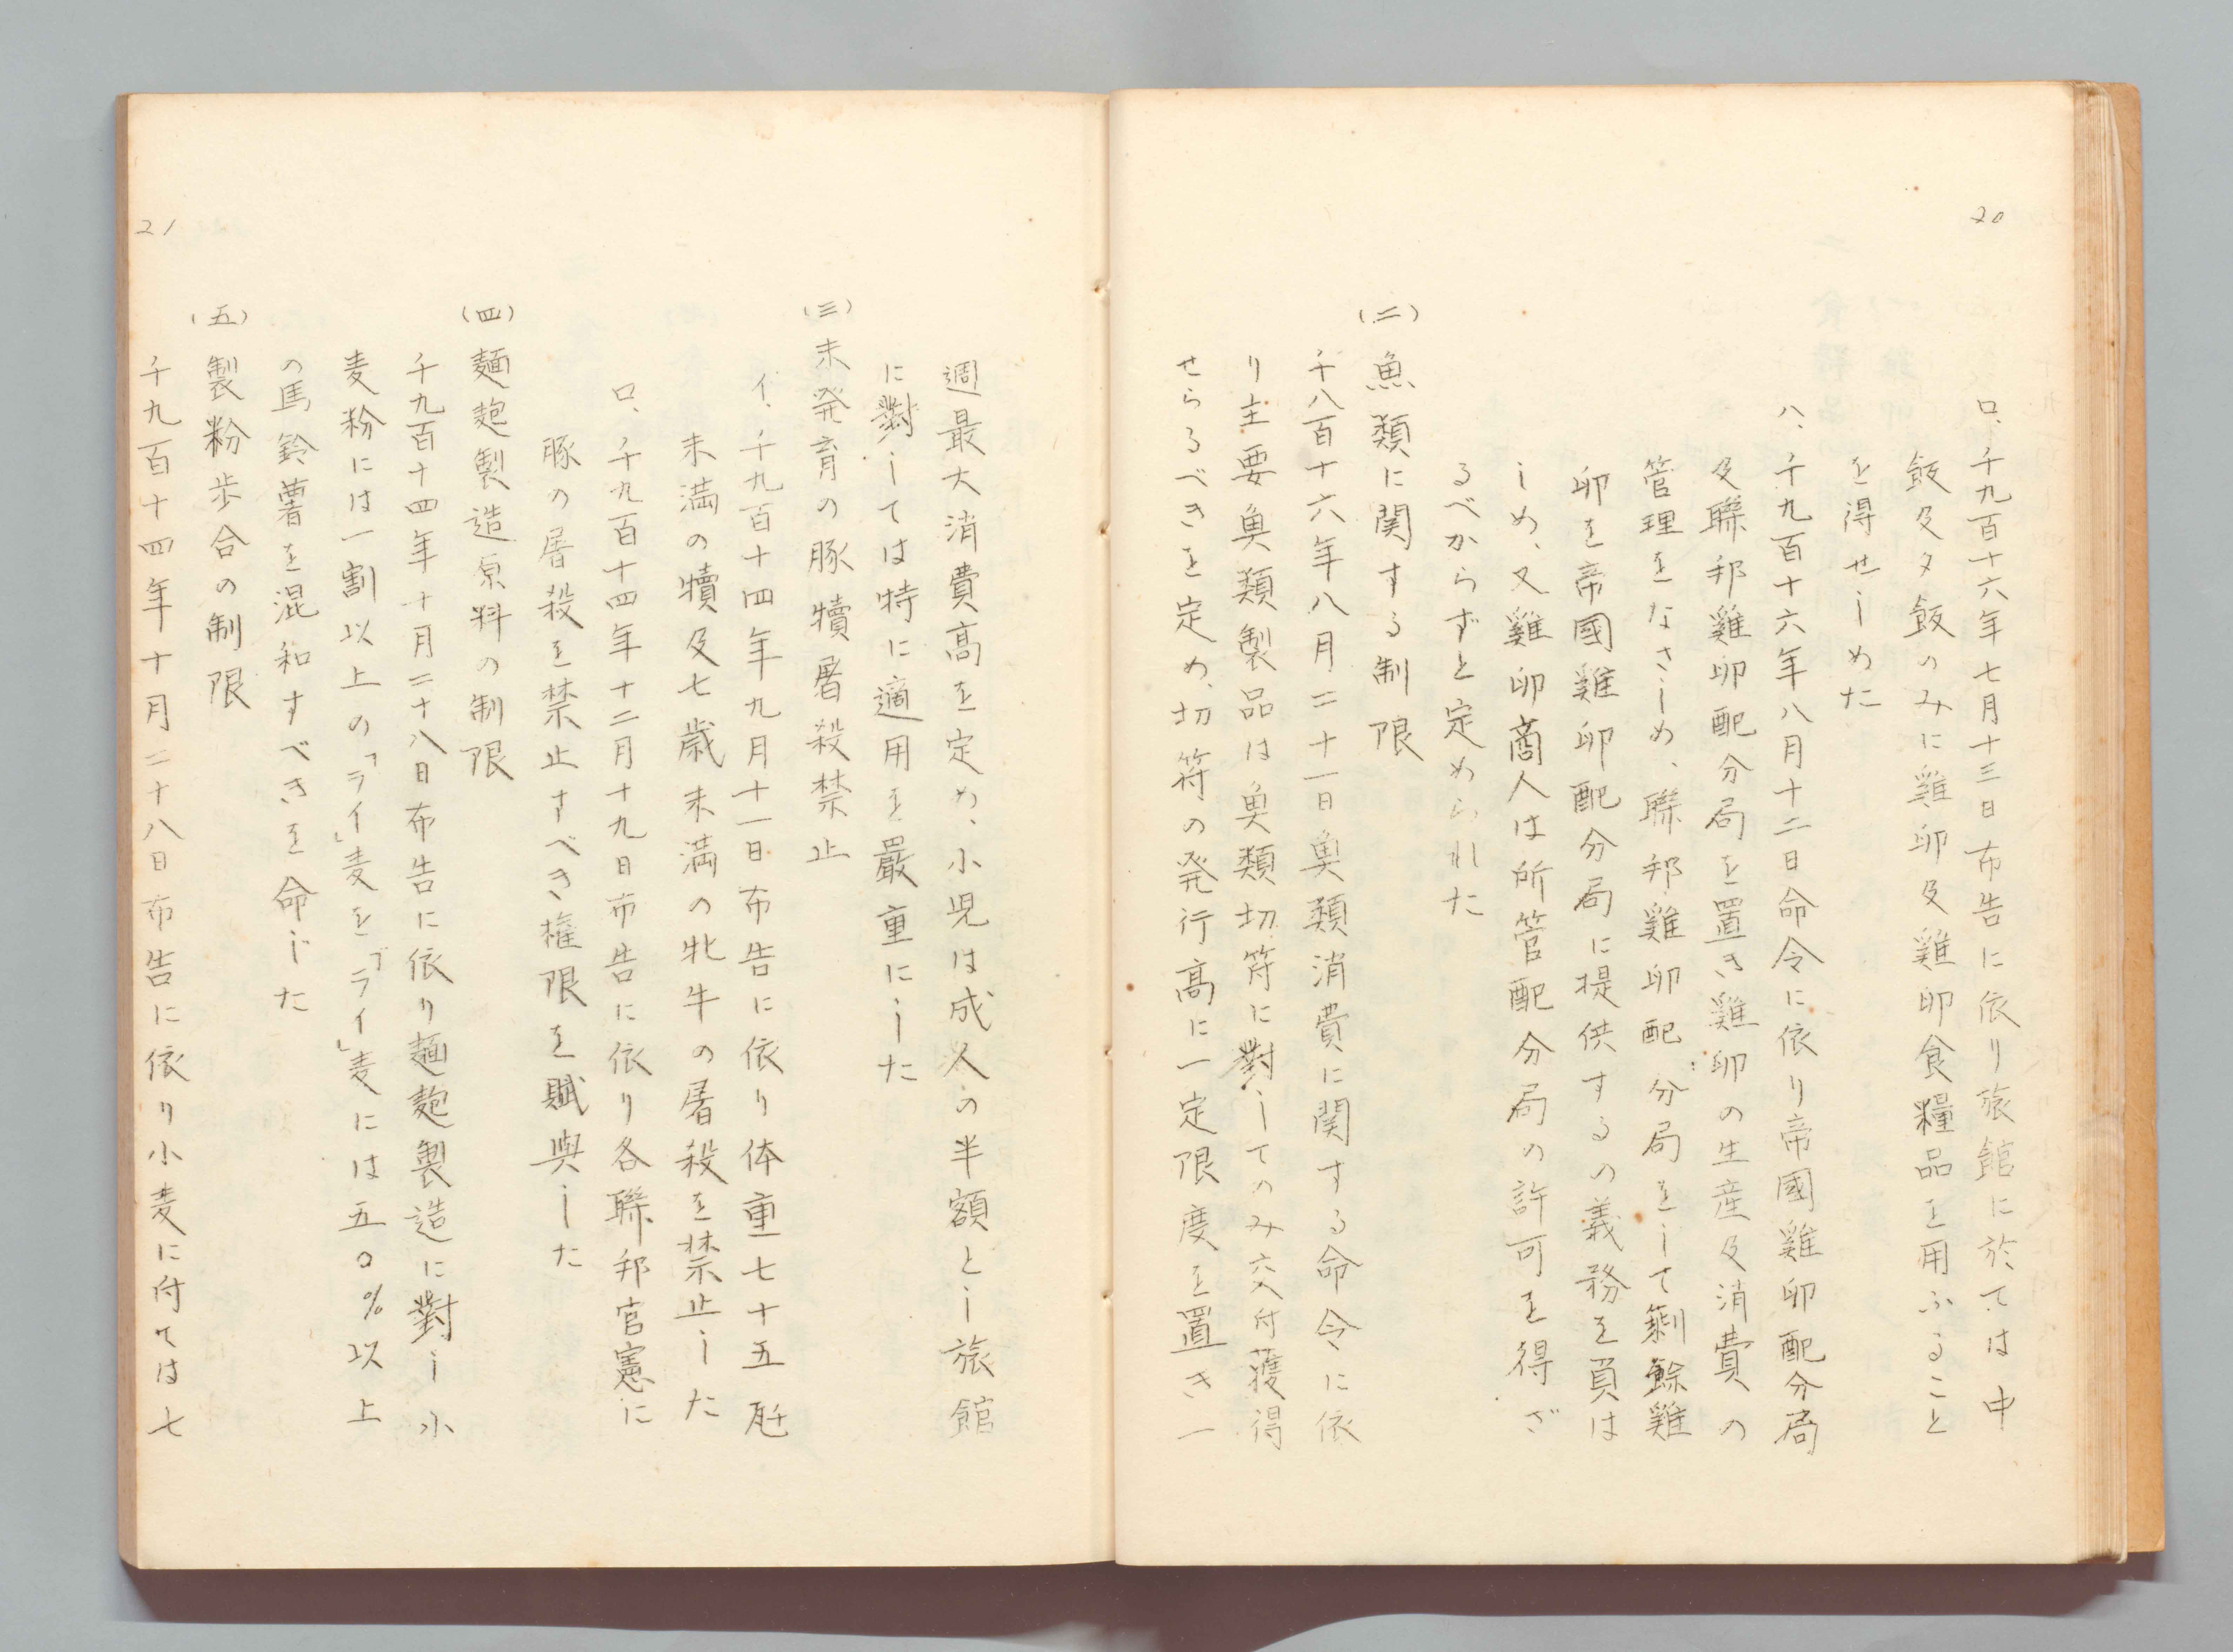 20
ロ、千九百十六年七月十三日布告に依り旅館に於ては中
飯及夕飯のみに雞卵及雞卵食糧品を用ふること
を得せしめた
ハ、千九百十六年八月十二日命令に依り帝國雞卵配分局
及聯邦雞卵配分局を置き雞卵の生産及消費の
管理をなさしめ、聯邦雞卵配分局をして剰餘雞
卵を帝國雞卵配分局に提供するの義務を負は
しめ、又雞卵商人は所管配分局の許可を得ざ
るべからずと定められた
(二)魚類に関する制限
千八百十六年八月二十一日魚類消費に関する命令に依
り主要魚類製品は魚類切符に對してのみ交付獲得
せらるべきを定め、切符の発行高に一定限度を置き一
週最大消費高を定め、小児は成人の半額とし旅館
に對しては特に適用を嚴重にした
(三)未発育の豚犢屠殺禁止
イ、千九百十四年九月十一日布告に依り体重七十五瓩
未満の犢及七歳未満の牝牛の屠殺を禁止した
ロ、千九百十四年十二月十九日布告に依り各聯邦官憲に
豚の屠殺を禁止すべき権限を賦與した
(四)麺麭製造原料の制限
千九百十四年十月二十八日布告に依り麺麭製造に對し小
麦粉には一割以上の「ライ」麦を「ライ」麦には五〇%以上
の馬鈴薯を混和すべきを命じた
(五)製粉歩合の制限
千九百十四年十月二十八日布告に依り小麦に付ては七
21